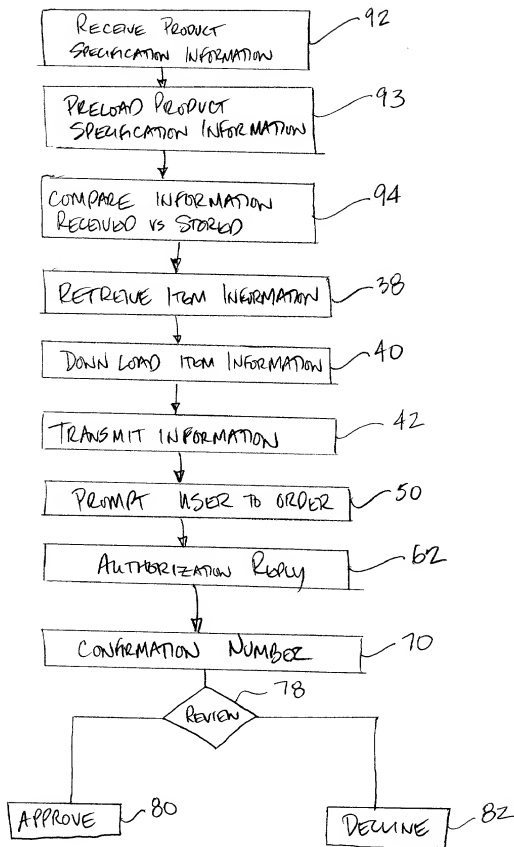 RECEIVE PRODUCT 92
SPECIFICATION INFORMATION
PRELOAD PRODUCT 93
SPECIFICATION INFORMATION
COMPARE INFORMATION 94
RECEIVED VS STORED
RETREIVE ITEM INFORMATION 38
DOWN LOAD ITEM INFORMATION 40
TRANSMIT INFORMATION 42
PROMPT USER TO ORDER 50
AUTHORIZATION REPLY 62
CONFIRMATION NUMBER 70
78
REVIEW
APPROVE 80
DECLINE 82